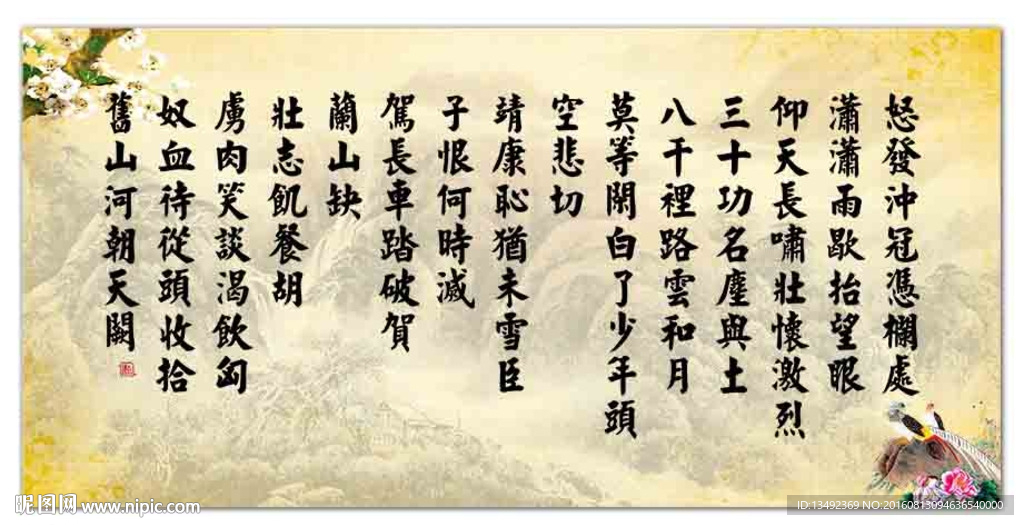 怒發沖冠憑欄處
瀟瀟雨歇抬望眼
仰天長嘯壯懷激烈
三十功名塵與土
八千裡路雲和月
莫等閑白了少年頭
空悲切
靖康恥猶未雪臣
子恨何時滅
駕長車踏破賀
蘭山缺
壯志飢餐胡
虜肉笑談渴飲匈
奴血待從頭收拾
舊山河朝天闕
昵图网 www.nipic.com
ID:13492369 NO:20160813094636540000